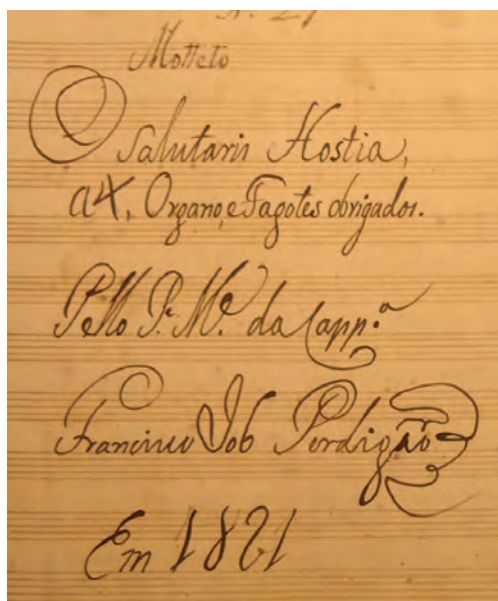 Motteto
O Salutaris Hostia,
a4, Organo, e Fagotes obrigados.
Pello P.e M.e da Capp.a
Francisco Perdigão
Em 1821